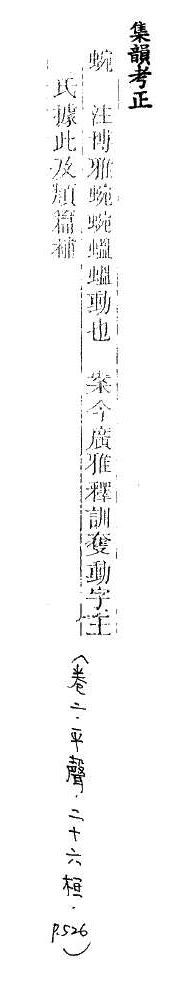 集韻考正
蜿　注博雅蜿蜿蝹蝹動也　案今廣雅釋訓奪動字王
氏據此及類篇補
（卷二．平聲．二十六桓．P.526）